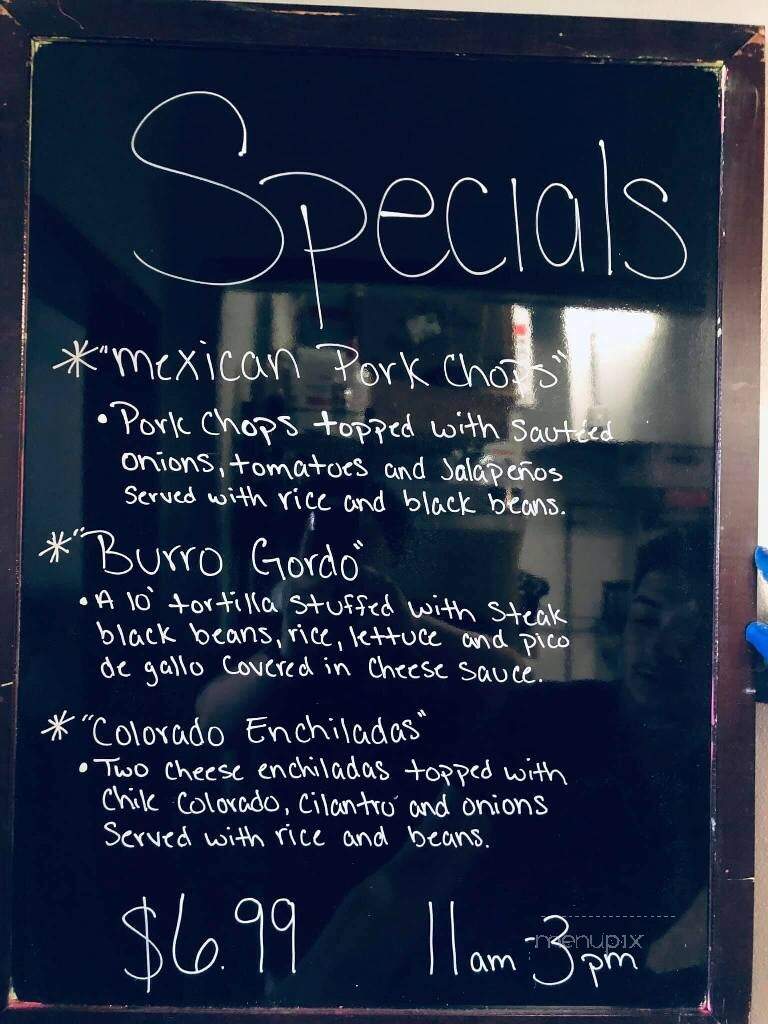 Specials
*"Mexican Pork Chops"
• Pork Chops topped with Sautéed
onions, tomatoes and Jalapeños
Served with rice and black beans.
*"Burro Gordo"
• A 10" tortilla stuffed with steak
black beans, rice, lettuce and pico
de gallo Covered in Cheese Sauce.
*"Colorado Enchiladas"
• Two Cheese enchiladas topped with
Chile Colorado, Cilantro and onions
Served with rice and beans.
$6.99 11am-3pm
menupix